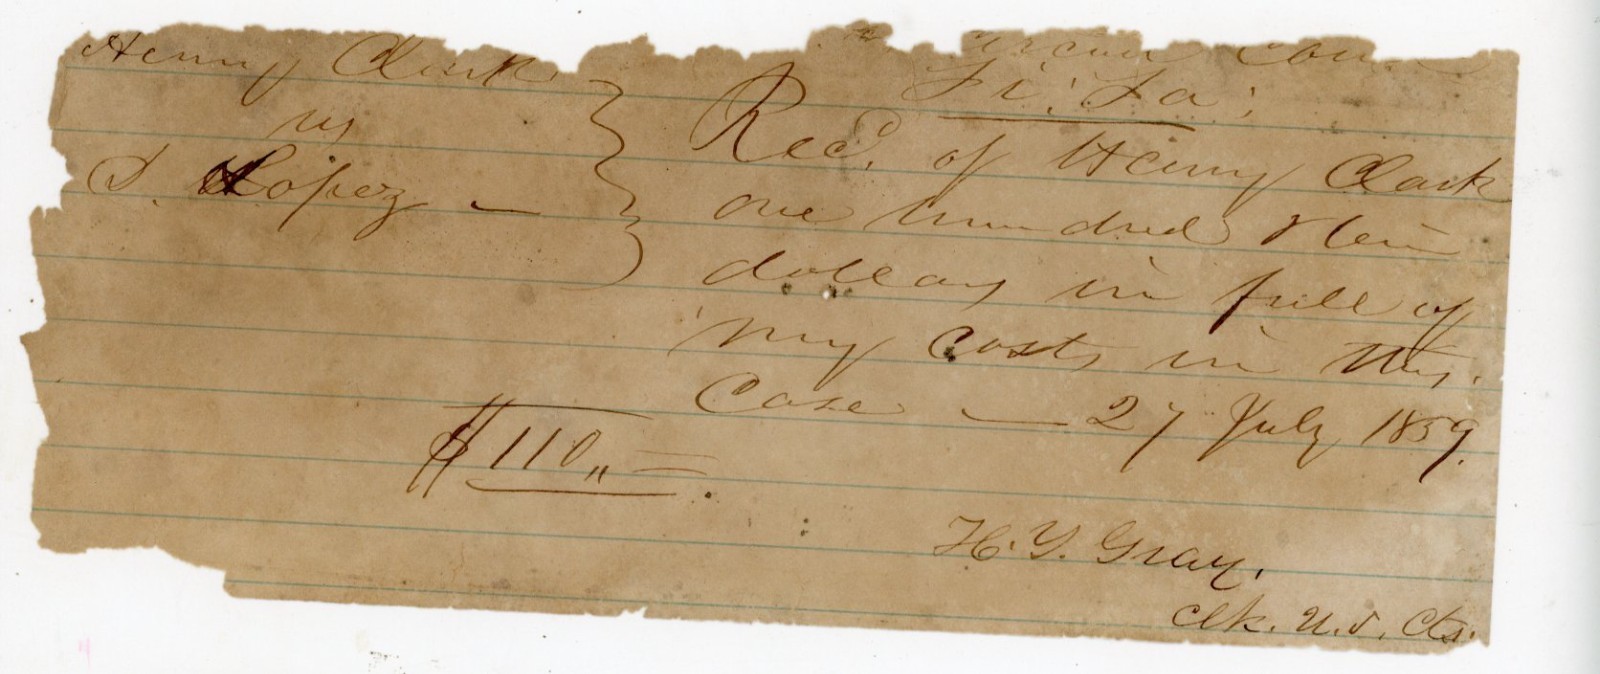 Henry Clark
vs
D. Lopez —
Fi: Fa:
Recd. of Henry Clark
one hundred & ten
dollars in full of
my costs in this
Case — 27 July 1859.
$110,, =
H. Y. Gray.
Clk. U.S. Cts.